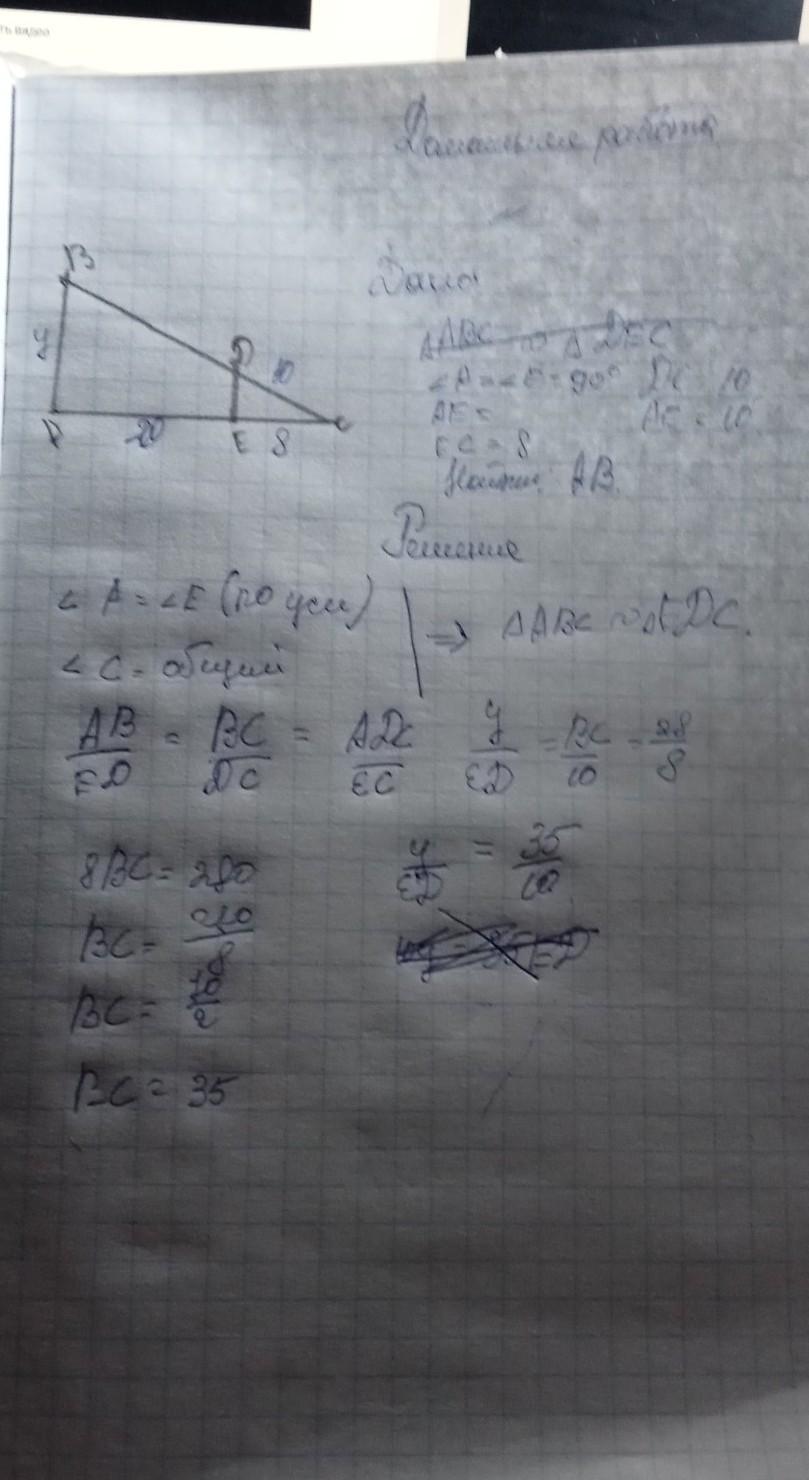 ть видео
Домашняя работа
B
y
D
10
A
20
E
8
C
Дано:
△ABC ∾ △DEC
∠A = ∠E = 90° DC = 10
AE = AE = 10
EC = 8
Найти: AB.
Решение
∠A = ∠E (по усл)
∠C - общий
=> △ABC ∾ △EDC.
AB/ED = BC/DC = AC/EC y/ED = BC/10 = 28/8
8BC = 280 y/ED = 35/10
BC = 280/8
BC = 70/2
BC = 35